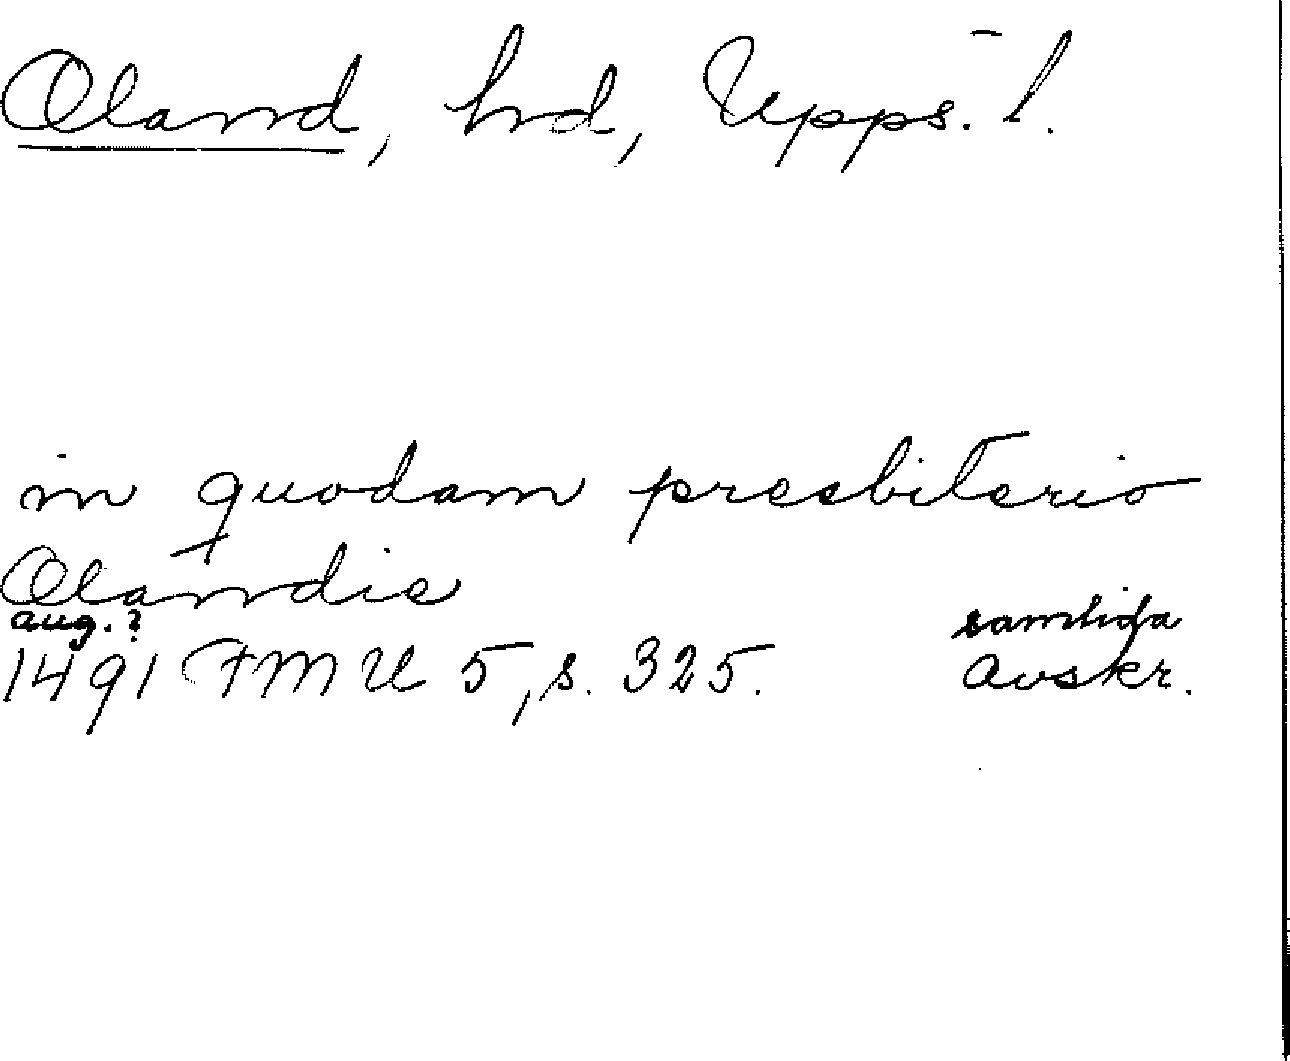 Oland, hd, Upps. l.
in quodam presbiterio
Olandie
aug. ? samtida
1491 FMU 5, s. 325. avskr.